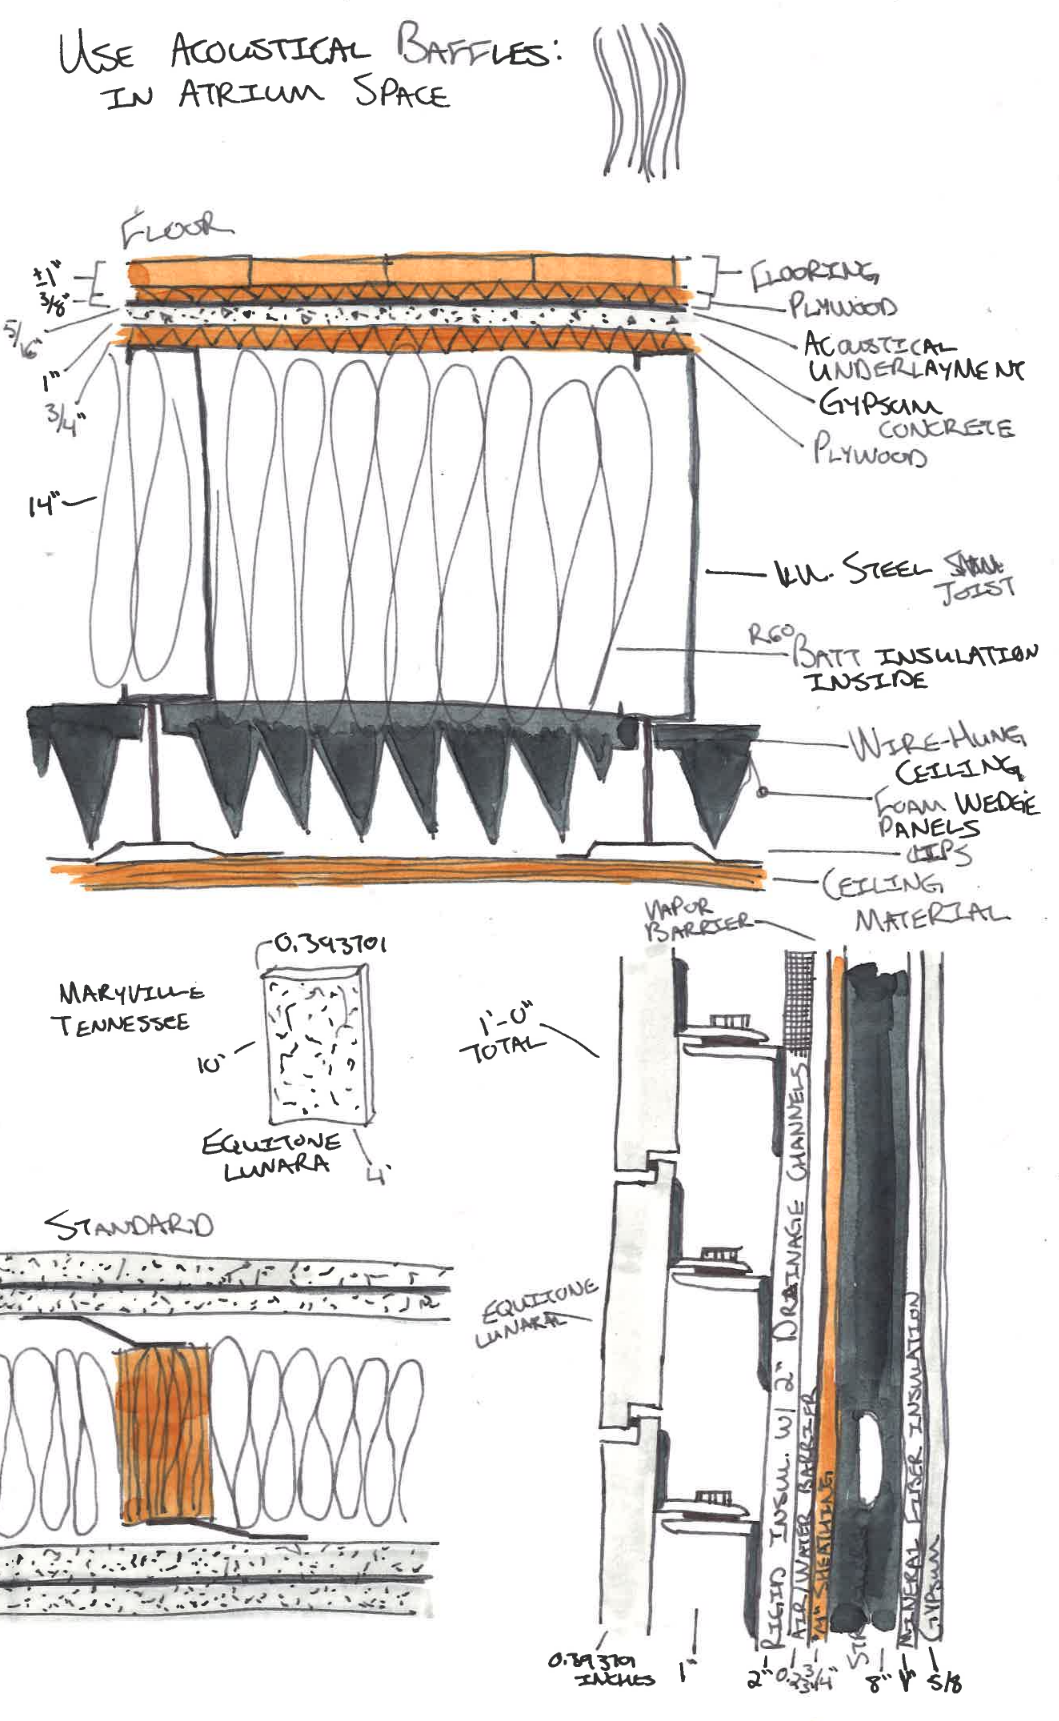 USE ACOUSTICAL BAFFLES:
IN ATRIUM SPACE
FLOOR
±1"
3/8"
5/16"
1"
3/4"
14"
FLOORING
PLYWOOD
ACOUSTICAL
UNDERLAYMENT
GYPSUM
CONCRETE
PLYWOOD
STEEL
JOIST
R60
BATT INSULATION
INSIDE
WIRE-HUNG
CEILING
FOAM WEDGE
PANELS
CLIPS
CEILING
MATERIAL
VAPOR
BARRIER
0.393701
MARYVILLE
TENNESSEE
10'
EQUITONE
LUNARA
4'
1'-0"
TOTAL
STANDARD
EQUITONE
LUNARAL
RIGID INSUL. W/ 2" DRAINAGE CHANNELS
AIR/WATER BARRIER
"M" SHEATHING
MINERAL FIBER INSULATION
GYPSUM
0.393701
INCHES
1"
2"
0.23
3/4"
8"
1"
5/8